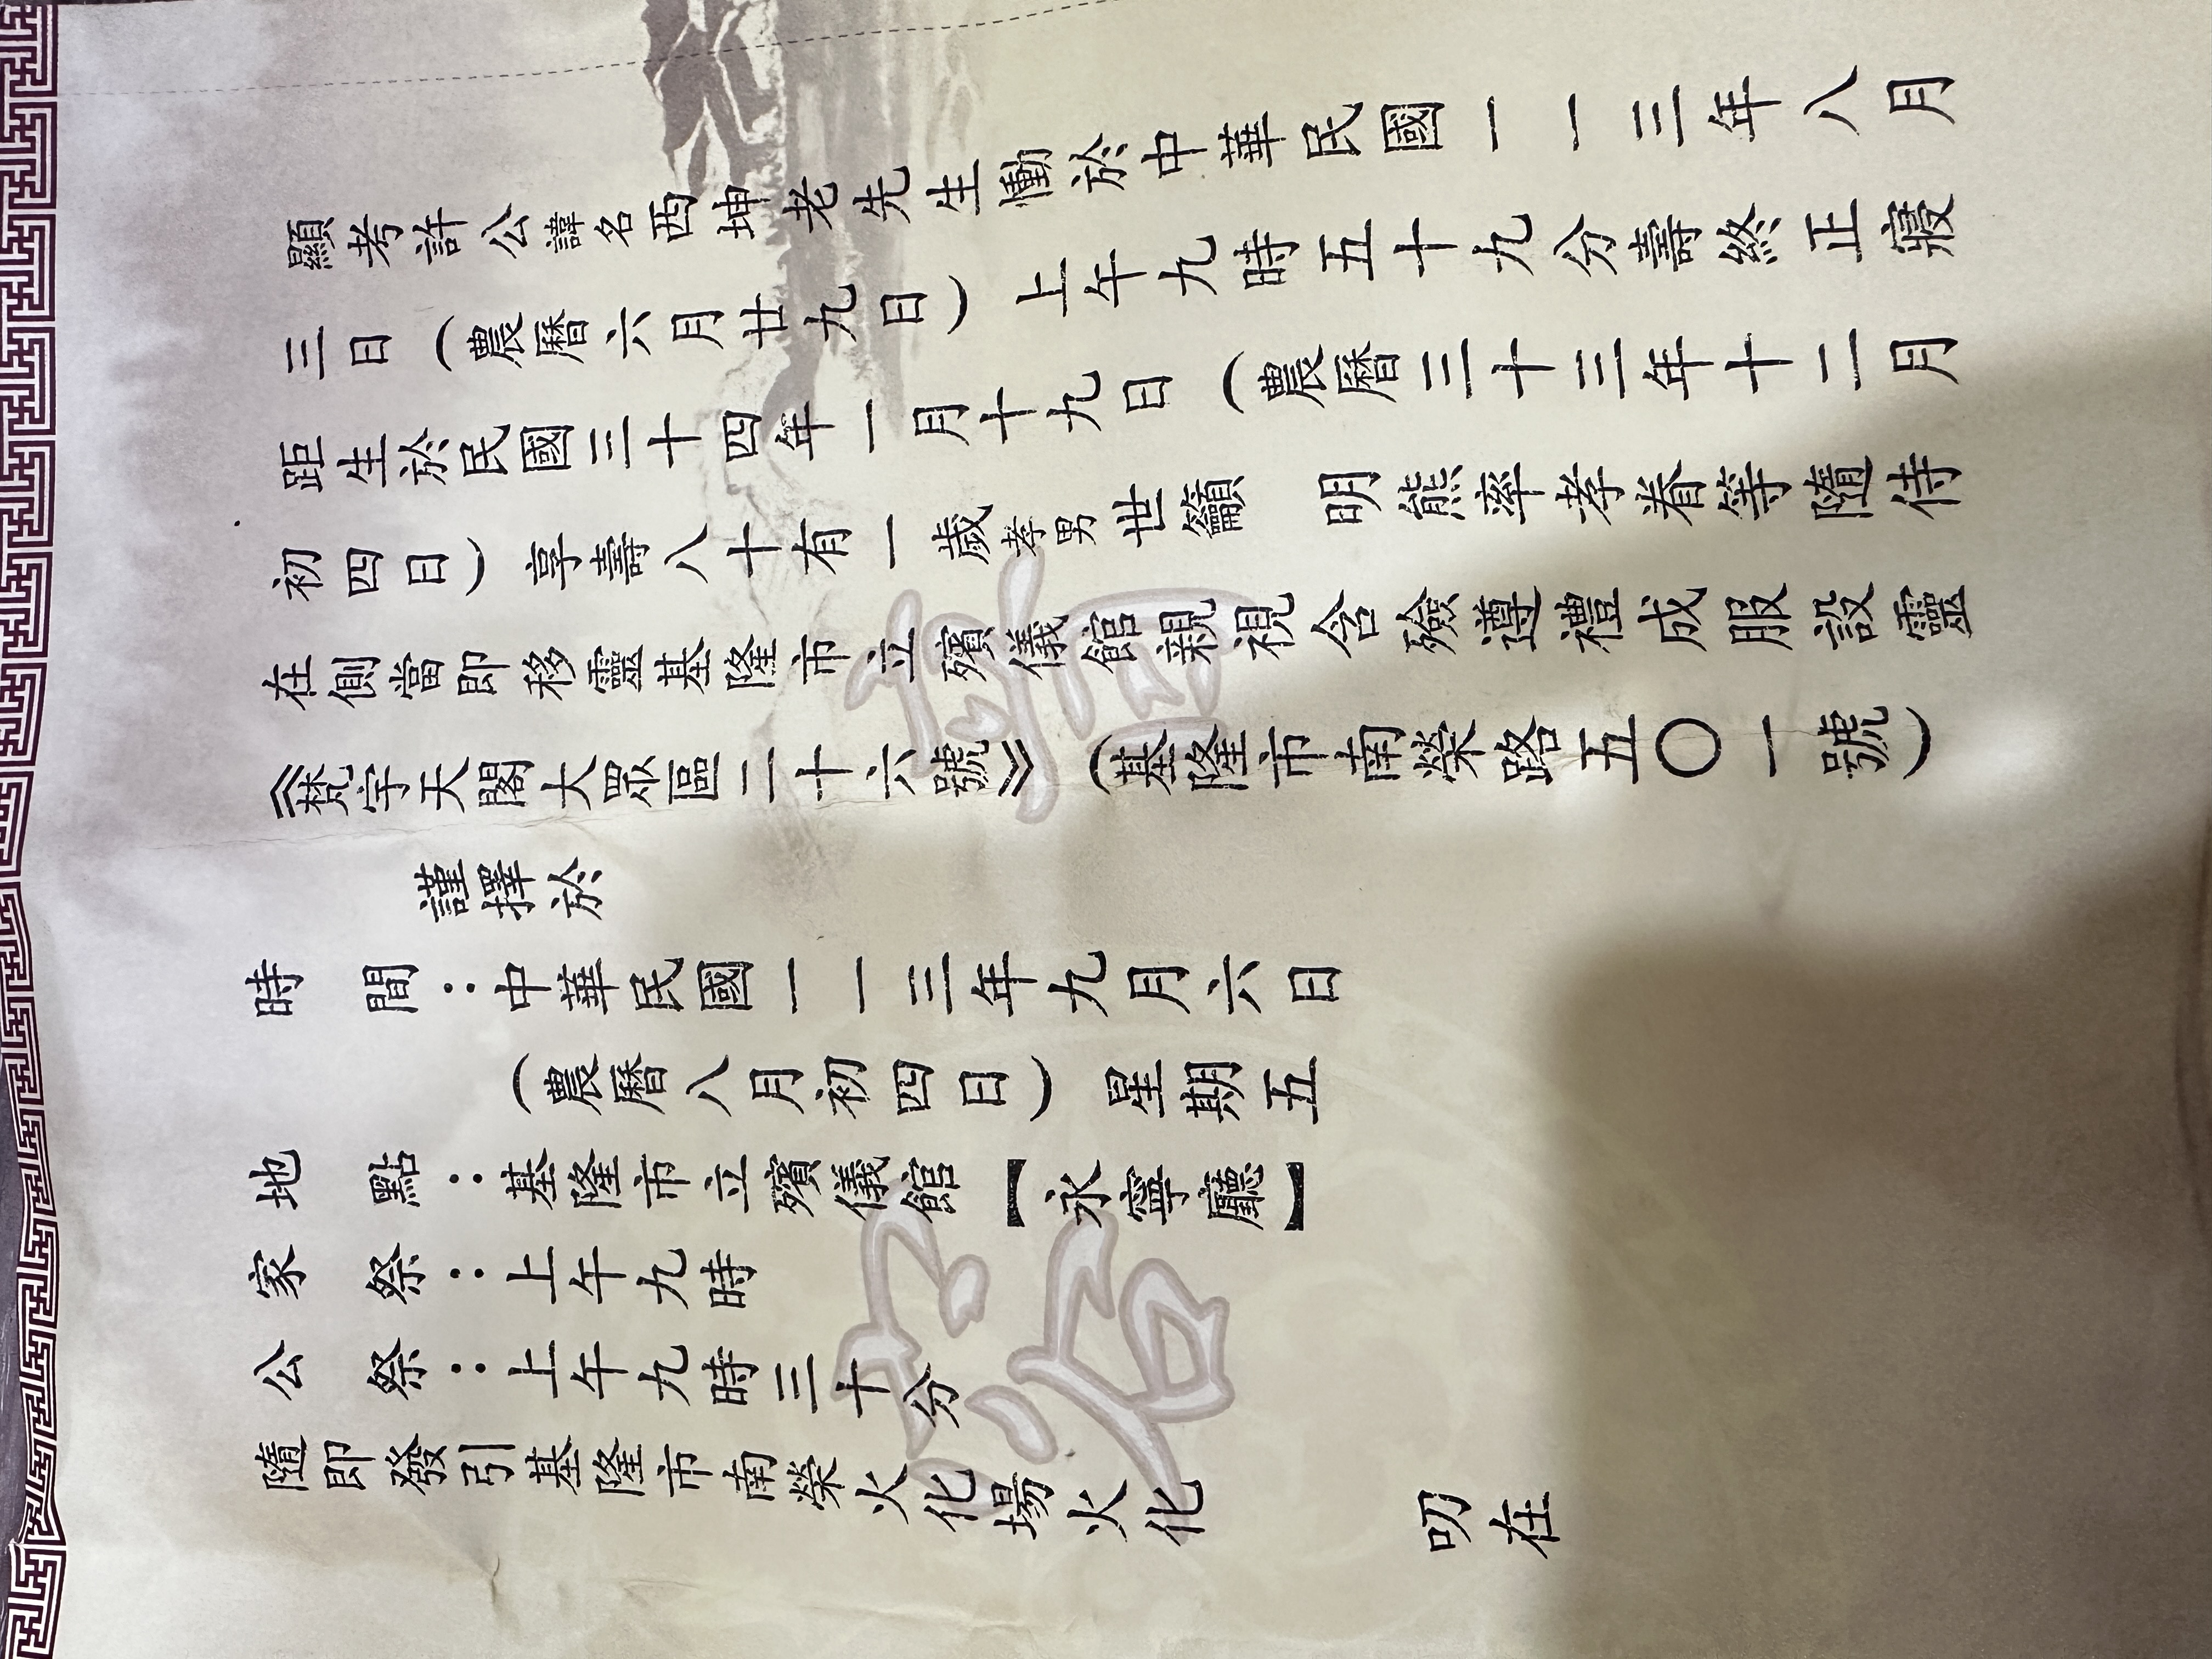 顯考許公諱名西坤老先生慟於中華民國一一三年八月
三日（農曆六月廿九日）上午九時五十九分壽終正寢
距生於民國三十四年一月十九日（農曆三十三年十二月
初四日）享壽八十有一歲孝男世籲　明熊率孝眷等隨侍
在側當即移靈基隆市立殯儀館親視含殮遵禮成服設靈
《梵宇天閣大眾區二十六號》（基隆市南榮路五〇一號）
謹擇於
時　間：中華民國一一三年九月六日
（農曆八月初四日）星期五
地　點：基隆市立殯儀館【永寧廳】
家　祭：上午九時
公　祭：上午九時三十分
隨即發引基隆市南榮火化場火化
叨在